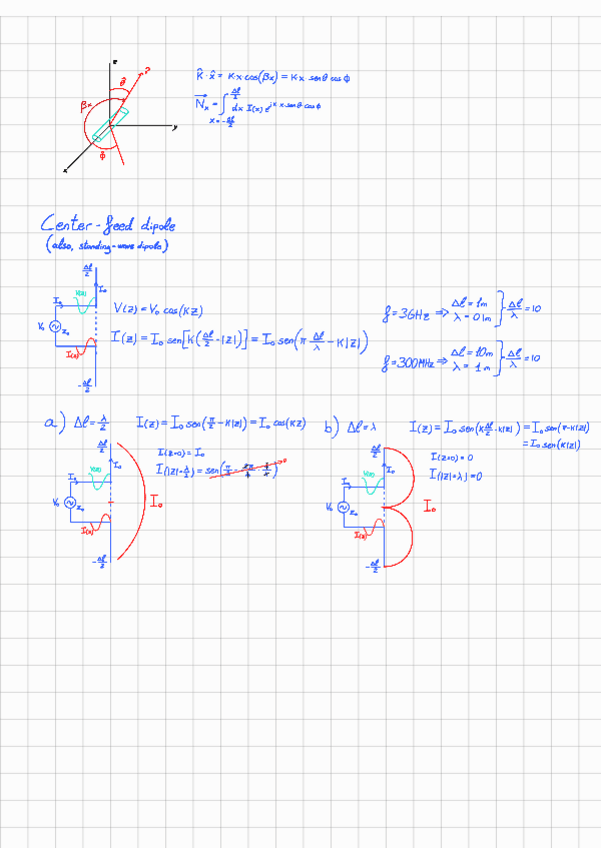 z
θ
r
βx
y
Φ
x
K̂ · x̂ = Kx cos(βx) = Kx senθ cosΦ
N⃗x = ∫ dx I(x) e^{jKx senθ cosΦ}
Δl/2
x = -Δl/2
Center-feed dipole
(also, standing-wave dipole)
Δl/2
I₀
V(z)
I₀
V₀
Z₀
I(z)
-Δl/2
V(z) = V₀ cos(Kz)
I(z) = I₀ sen[K(Δl/2 - |z|)] = I₀ sen(π Δl/λ - K|z|)
f = 3GHz ⇒ Δl = 1m
λ = 0.1m
Δl/λ = 10
f = 300MHz ⇒ Δl = 10m
λ = 1m
Δl/λ = 10
a) Δl = λ/2 I(z) = I₀ sen(π/2 - K|z|) = I₀ cos(Kz)
I(z=0) = I₀
Δl/2
I₀
V(z)
I₀
V₀
Z₀
I(z)
-Δl/2
I₀
b) Δl = λ I(z) = I₀ sen(KΔl/2 - K|z|) = I₀ sen(π - K|z|)
= I₀ sen(K|z|)
I(z=0) = 0
I(|z|=λ) = 0
Δl/2
I₀
V(z)
I₀
V₀
Z₀
I(z)
-Δl/2
I₀